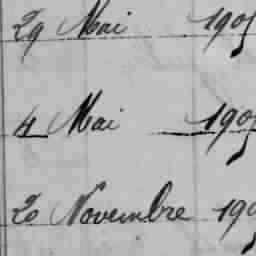 29 Mai 1905
4 Mai 1905
20 Novembre 190